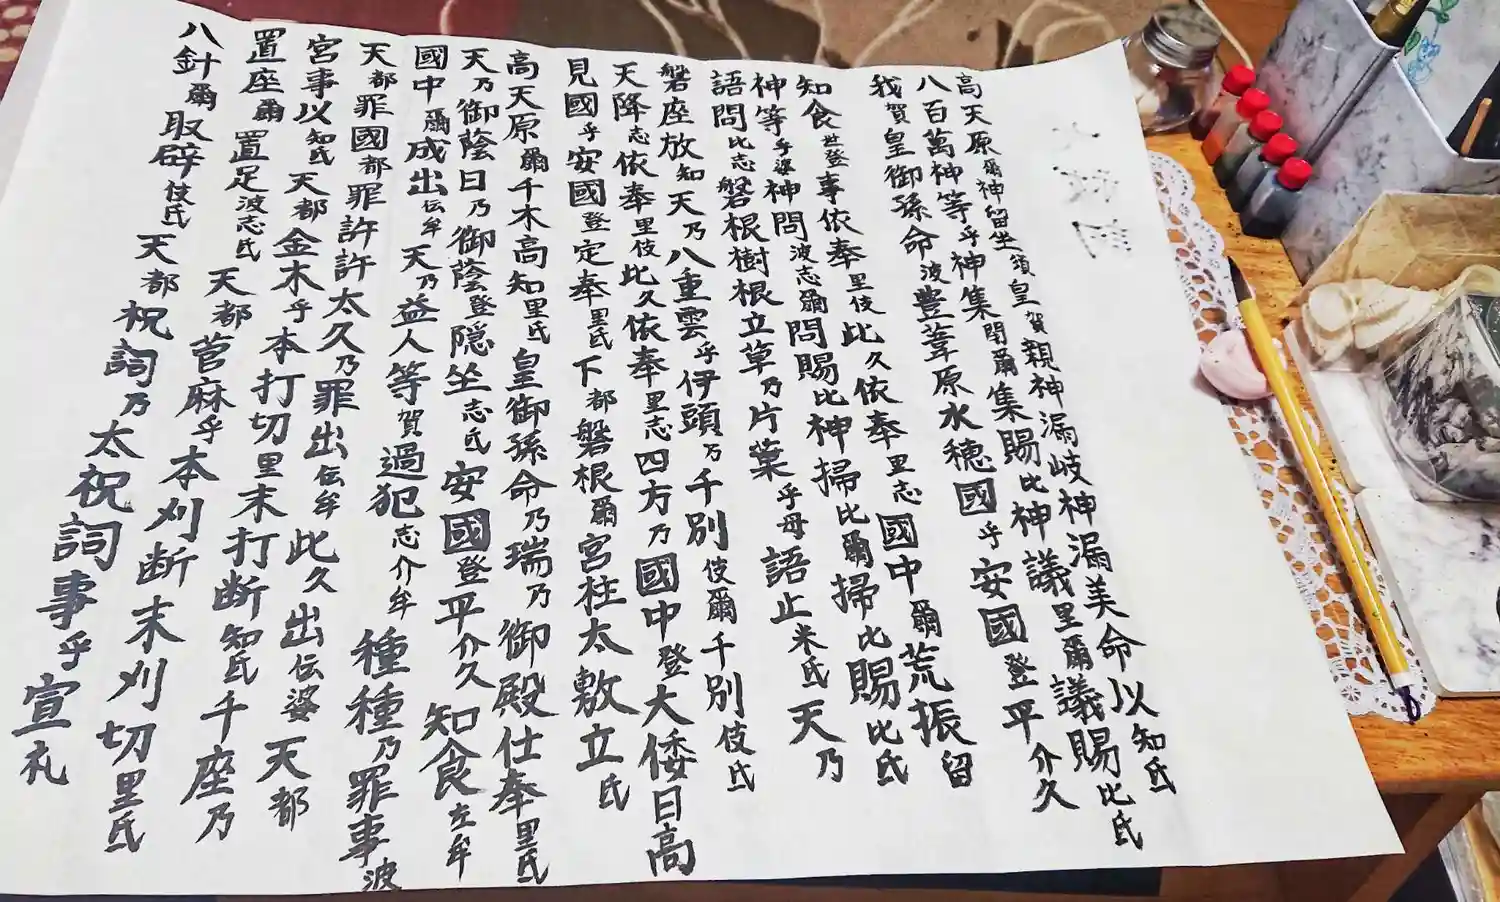 高天原爾神留坐須皇賀親神漏岐神漏美命以知氐
八百萬神等乎神集閇爾集賜比神議里爾議賜比氐
我賀皇御孫命波豊葦原水穂國乎安國登平介久
知食世登事依奉里伎此久依奉里志國中爾荒振留
神等乎婆神問波志爾問賜比神掃比爾掃比賜比氐
語問比志磐根樹根立草乃片葉乎母語止米氐天乃
磐座放知天乃八重雲乎伊頭乃千別伎爾千別伎氐
天降志依奉里伎此久依奉里志四方乃國中登大倭日高
見國乎安國登定奉里氐下都磐根爾宮柱太敷立氐
高天原爾千木高知里氐皇御孫命乃瑞乃御殿仕奉里氐
天乃御蔭日乃御蔭登隠坐志氐安國登平介久知食左牟
國中爾成出伝牟天乃益人等賀過犯志介牟種種乃罪事波
天都罪國都罪許許太久乃罪出伝牟此久出伝婆天都
宮事以知氐天都金木乎本打切里末打断知氐千座乃
置座爾置足波志氐天都菅麻乎本刈断末刈切里氐
八針爾取辟伎氐天都祝詞乃太祝詞事乎宣礼